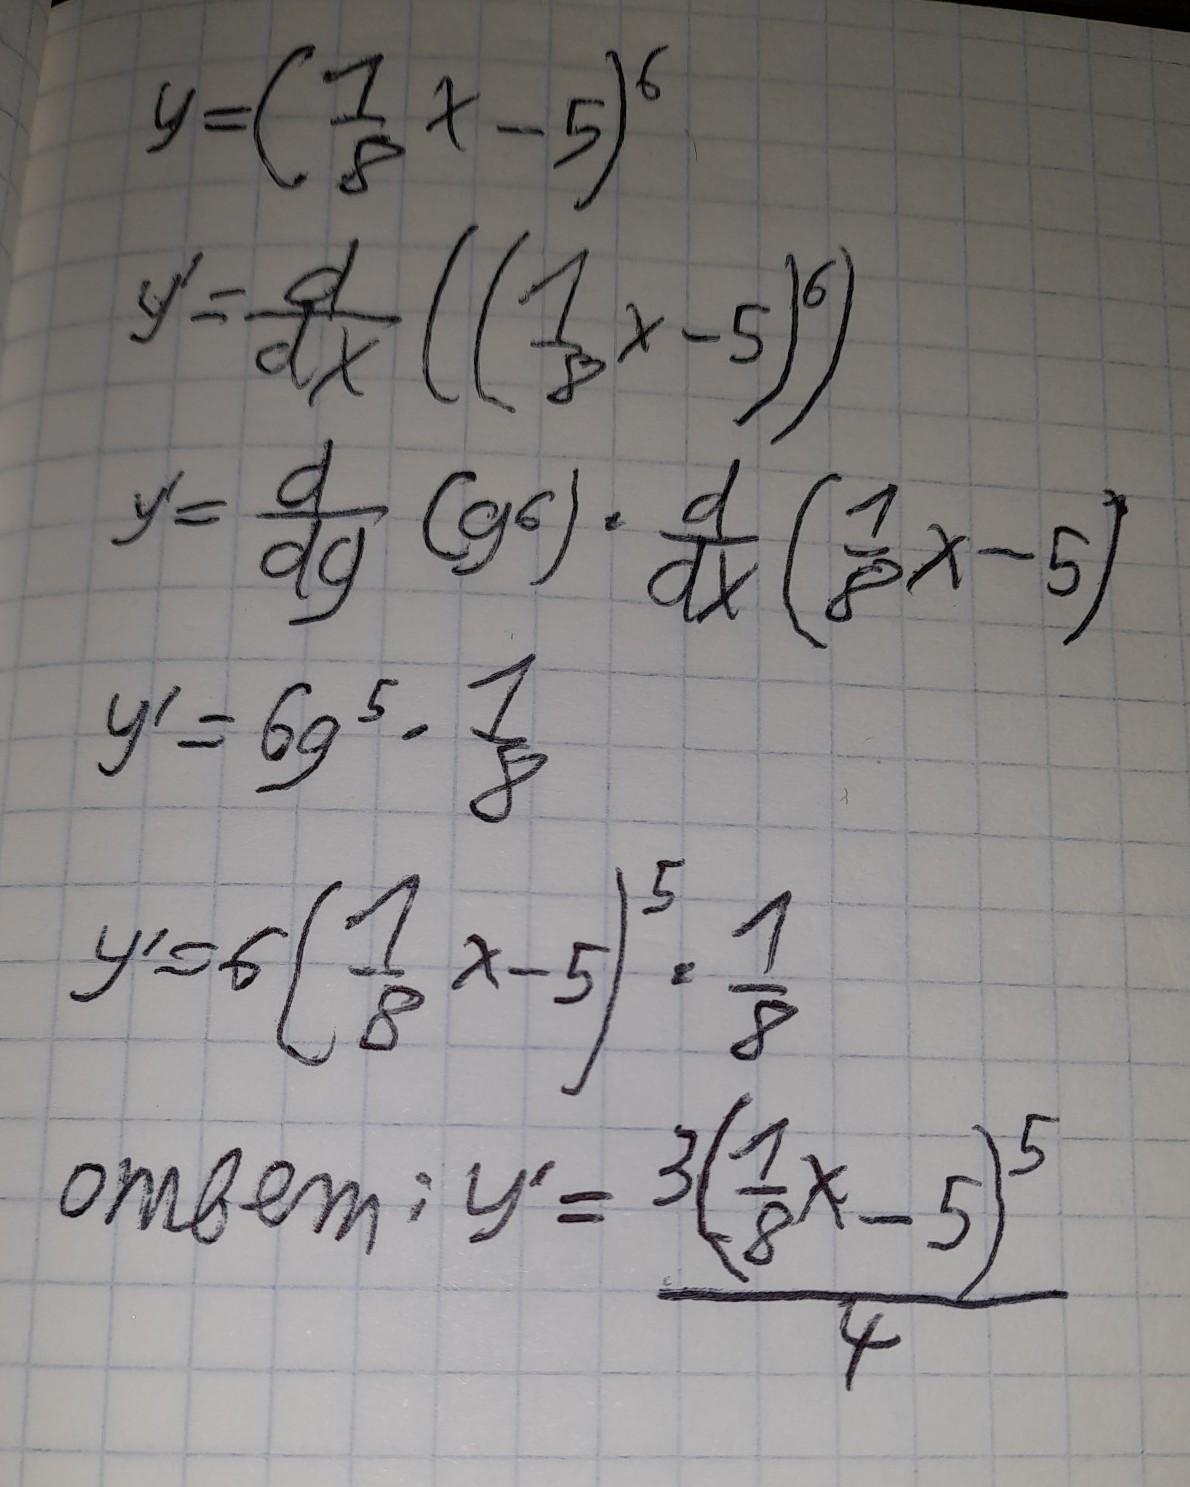 y = (1/8 x - 5)^6
y' = d/dx ((1/8 x - 5)^6)
y' = d/dg (g^6) · d/dx (1/8 x - 5)
y' = 6g^5 · 1/8
y' = 6(1/8 x - 5)^5 · 1/8
ответ: y' = 3(1/8 x - 5)^5 / 4